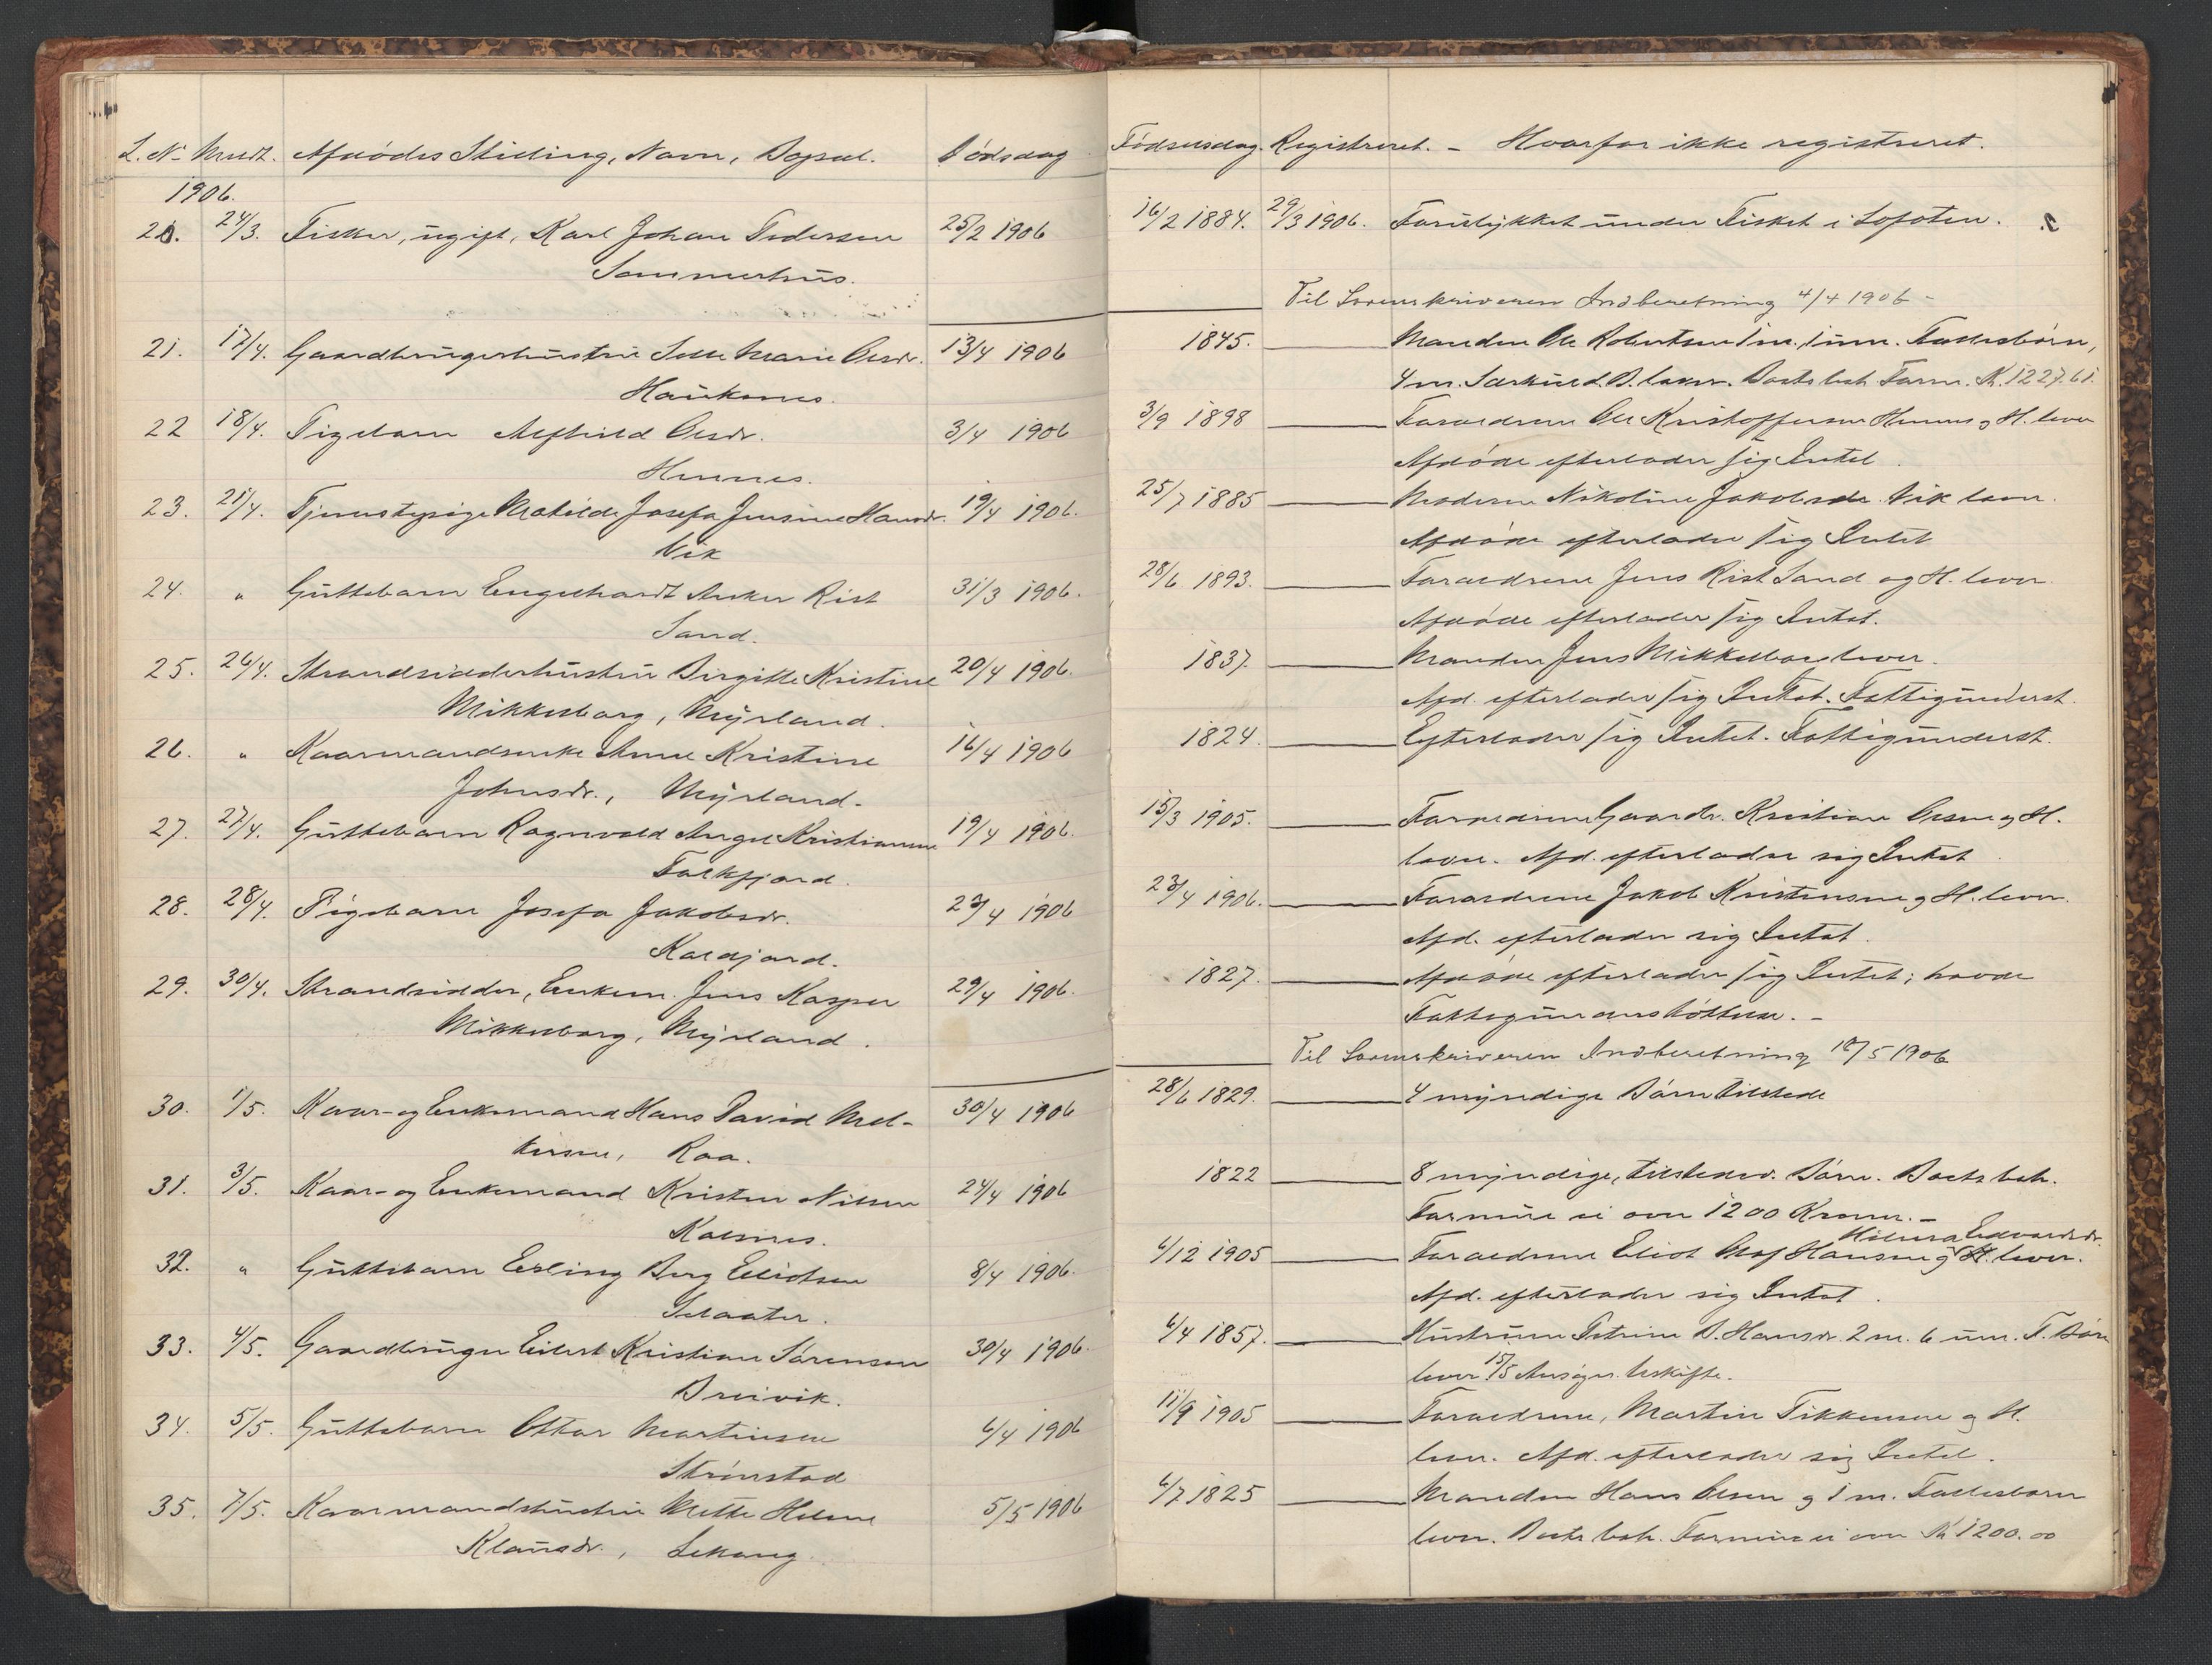 L. No Meldt. Afdødes Stilling, Navn, Bopæl. Dødsdag
1906.
20. 24/3. Fisker, ugift, Karl Johan Pedersen 25/2 1906
Sommerhus.
21. 17/4. Gaardbrugerhustru Marie Olsdr. 13/4 1906
Hauknes.
22 18/4. Pigebarn Alfhild Olsdr. 3/4 1906
Hennes.
23. 21/4. Tjenestepige Mathilde Josefa Jensine Hansdr. 19/4 1906.
Vik
24. " Guttebarn Engelhardt Anker Rist 31/3 1906.
Sand.
25. 26/4. Strandsidderhustru Birgitte Kristine 20/4 1906.
Mikkelborg, Myrland.
26. " Kaarmandsenke Anne Kristine 16/4 1906
Johnsdr., Myrland.
27. 27/4. Guttebarn Ragnvald Angel Kristiansen 19/4 1906.
Falkfjord.
28. 28/4. Pigebarn Josefa Jakobsdr. 23/4 1906
Kaldjord.
29. 30/4. Strandsidder, Enkem. Jens Kasper 29/4 1906.
Mikkelborg, Myrland.
30. 1/5. Kaar- og Enkemand Hans David Mel- 30/4 1906
kersen, Raa.
31. 3/5. Kaar- og Enkemand Kristen Nilsen 24/4 1906
Kalsnes.
32. " Guttebarn Erling Berg Eliotsen 8/4 1906.
Selaater.
33. 4/5. Gaardbruger Eilert Kristian Sørensen 30/4 1906.
Breivik.
34. 5/5. Guttebarn Ottar Martinsen 6/4 1906
Strønstad
35. 7/5. Kaarmandshustru Mette Helene 5/5 1906
Klausdr.,
Fødselsdag. Registreret. - Hvorfor ikke registreret.
16/2 1884. 29/3 1906. Forulykket under Fisket i Lofoten.
Til Sorenskriveren Indberetning 4/4 1906 -
1845. Manden Ole Robertsen 1 m., 1 um. Fællesbørn,
4 m. Særkuld. B. lever. Boets beh. Form. Kr. 1227.61.
3/9 1898 Forældrene Ole Kristoffersen Hennes og H. lever
Afdøde efterlader sig Intet.
25/7 1885 Moderen Nikoline Jakobsdr. Vik lever.
Afdøde efterlader sig Intet
28/6 1893. Forældrene Jens Rist Sand og H. lever.
Afdøde efterlader sig Intet.
1837. Manden Jens Mikkelborg lever.
Afd. efterlader sig Intet. Fattigunderst.
1824. Efterlader sig Intet. Fattigunderst.
15/3 1905. Forældrene Gaardbr. Kristian Olsen og H.
lever. Afd. efterlader sig Intet.
23/4 1906. Forældrene Jakob Kristensen og H. lever.
Afd. efterlader sig Intet.
1827. Afdøde efterlader sig Intet; havde
Fattigunderstøttelse. -
Til Sorenskriveren Indberetning 10/5 1906
28/6 1829. 4 myndige Børn tilstede
1822 8 myndige, tilstedev. Børn. Boets beh.
Formue ei over 1200 Kroner. -
Hilma Edvardsdr.
6/12 1905 Forældrene Eliot Olaf Hansen og H. lever.
Afd. efterlader sig Intet.
6/4 1857. Hustruen Petrine B. Hansdr. 2 m. 6 um. F. Børn
lever. 15/5 Ansøger Uskifte.
11/9 1905 Forældrene, Martin Fikkensen og H.
lever. Afd. efterlader sig Intet.
6/7 1825 Manden Hans Olsen og 1 m. Fællesbarn
lever. Boets beh. Formue ei over Kr 1200.00